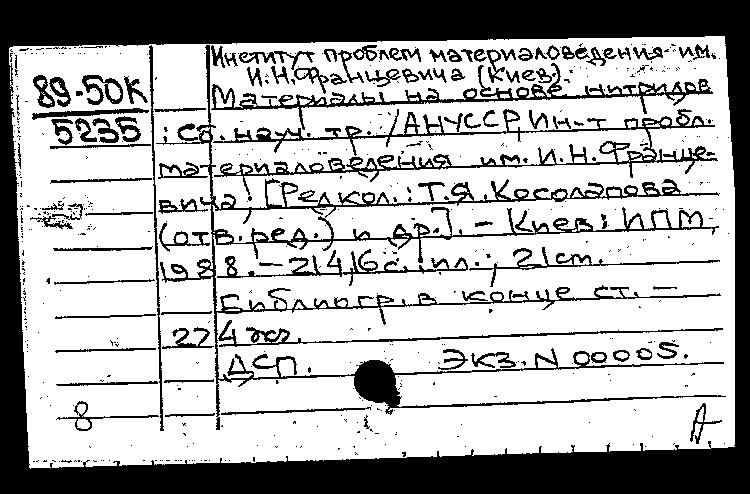 Институт проблем материаловедения им.
И.Н.Францевича (Киев).
89-50К
5235
Материалы на основе нитридов
: Сб. науч. тр. / АНУССР, Ин-т пробл.
материаловедения им. И.Н.Францевича;
[Редкол.: Т.Я.Косолапова
(отв.ред.) и др.]. - Киев: ИПМ,
1988. - 214,16 с.: ил.; 21 см.
Библиогр. в конце ст. -
274 экз.
ДСП. ЭКЗ. N 00005.
8
А